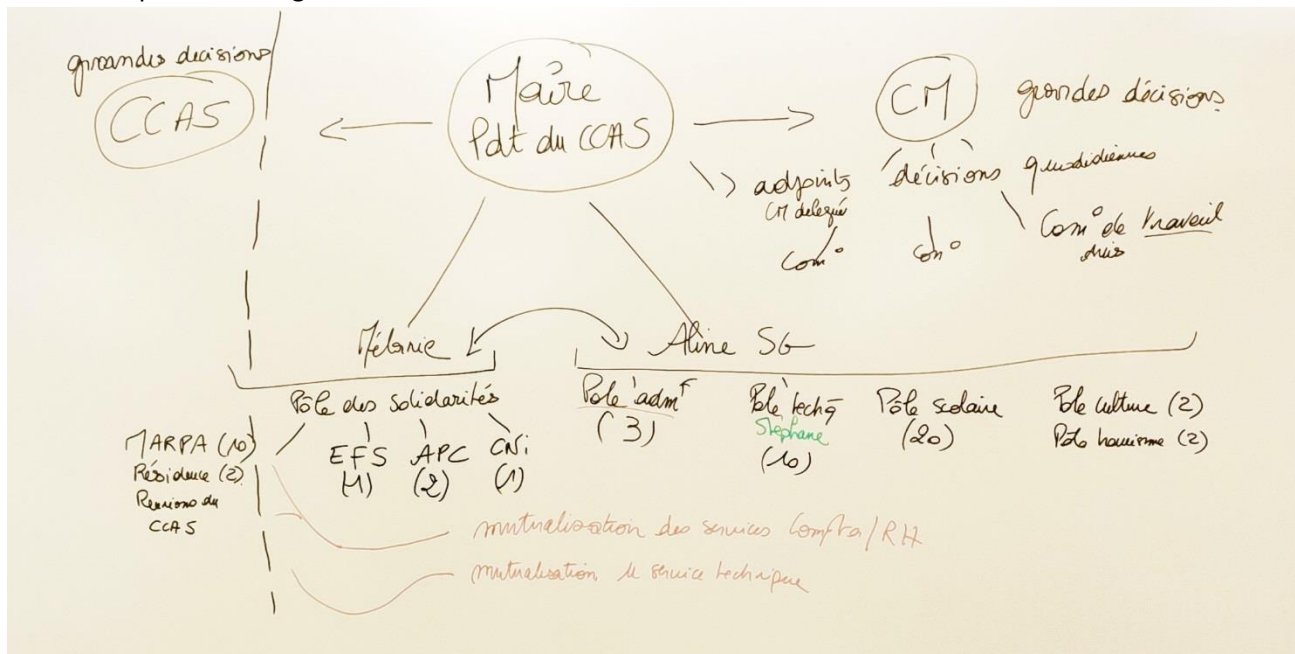 grandes decisions
CCAS
Maire
Pdt du CCAS
CM
grandes décisions
adjoints
CM délégué
décisions quotidiennes
Com°
Com°
Com° de travail
Mélanie
Aline SG
Pôle des Solidarités
MARPA (10)
Résidence (2)
CCAS
EFS
(1)
APC
(2)
CNi
(1)
Pole adm†
(3)
Pôle tech
Stéphane
(10)
Pôle scolaire
(20)
Pole culture (2)
Pole tourisme (2)
mutualisation des services Compta/RH
mutualisation le service technique